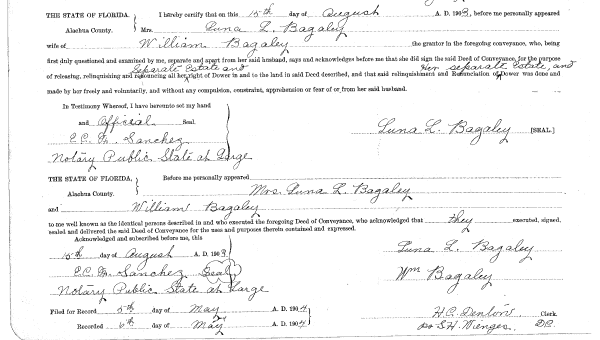 THE STATE OF FLORIDA, I hereby certify that on this 15th day of August A. D. 1903, before me personally appeared
Alachua County. Mrs. Luna L. Bagaley
wife of William Bagaley the grantor in the foregoing conveyance, who, being
first duly questioned and examined by me, separate and apart from her said husband, says and acknowledges before me that she did sign the said Deed of Conveyance, for the purpose
Separate Estate and Her separate Estate, and
of releasing, relinquishing and renouncing all her right of Dower in and to the land in said Deed described, and that said relinquishment and Renunciation of Dower was done and
made by her freely and voluntarily, and without any compulsion, constraint, apprehension or fear of or from her said husband.
In Testimony Whereof, I have hereunto set my hand
and Official Seal
Luna L. Bagaley [SEAL]
Sanchez
Notary Public State at Large
THE STATE OF FLORIDA, Before me personally appeared
Alachua County. Mrs. Luna L. Bagaley
and William Bagaley
to me well known as the identical persons described in and who executed the foregoing Deed of Conveyance, who acknowledged that they executed, signed,
sealed and delivered the said Deed of Conveyance for the uses and purposes therein contained and expressed.
Acknowledged and subscribed before me, this
15th day of August A. D. 1903 Luna L. Bagaley
Sanchez Seal
Wm Bagaley
Notary Public State at Large
Filed for Record 5th day of May A. D. 1904 H. C. Denton Clerk.
Recorded 6th day of May A. D. 1904 S. H. Wienges D.C.